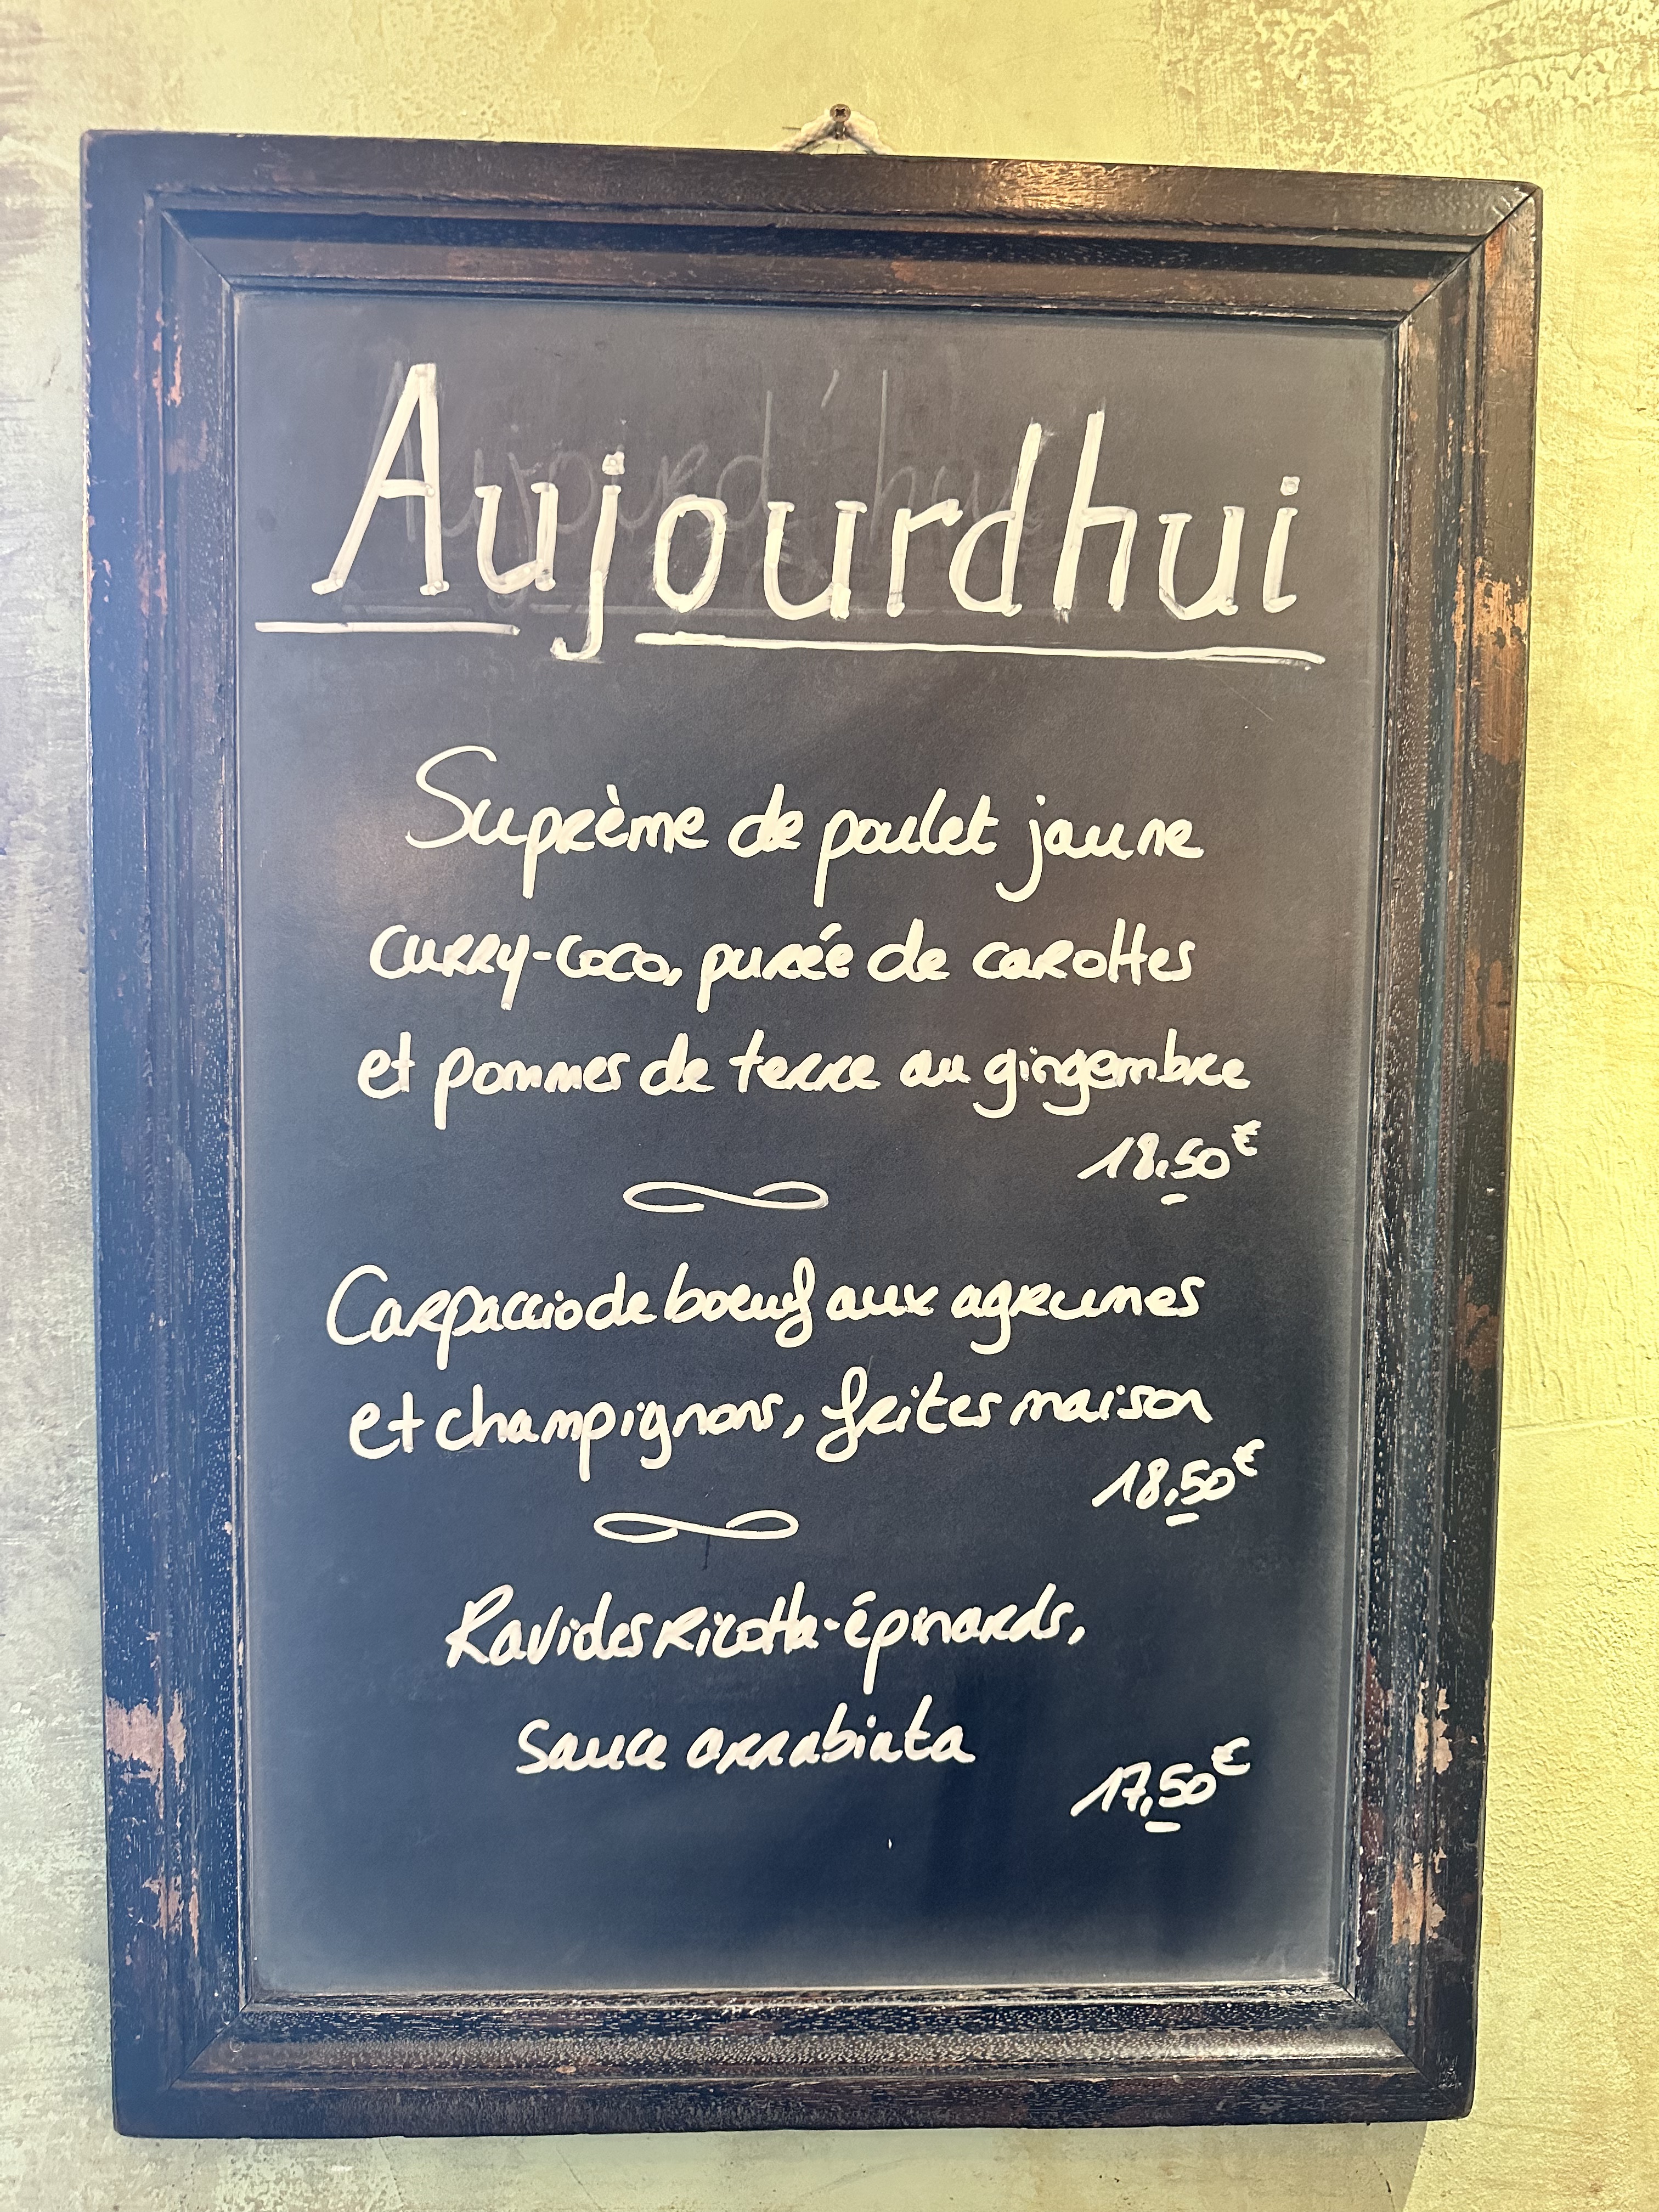 Aujourdhui
Suprème de poulet jaune
curry-coco, purée de carottes
et pommes de terre au gingembre
18,50€
Carpaccio de boeuf aux agrumes
et champignons, frites maison
18,50€
Ravioles ricotta-épinards,
sauce arrabiata
17,50€